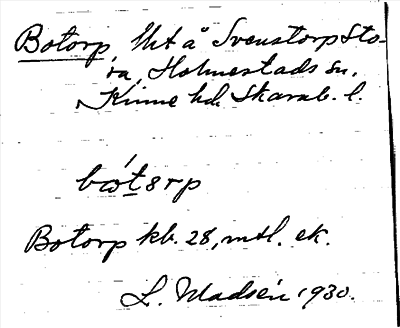 Botorp lht å Svenstorp Sto-
ra, Holmestads sn.
Kinne hd. Skarab. l.
bώt8rp
Botorp kb. 28, mtl. ek.
L. Madsén 1930.